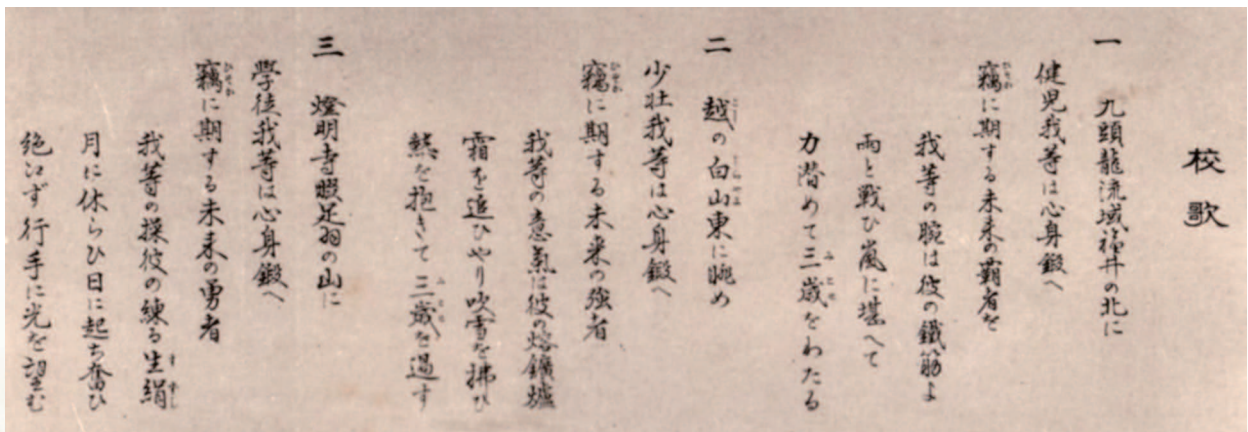 校歌
一 九頭龍流域福井の北に
健児我等は心身鍛へ
竊に期する未来の覇者を
我等の腕は彼の鐵筋よ
雨と戦ひ嵐に堪へて
力潜めて三歳をわたる
二 越の白山東に眺め
少壮我等は心身鍛へ
竊に期する未来の強者
我等の意氣は彼の熔鑛爐
霜を追ひやり吹雪を拂ひ
熱を抱きて三歳を過す
三 燈明寺畷足羽の山に
學徒我等は心身鍛へ
竊に期する未来の勇者
我等の操彼の練る生絹
月に休らひ日に起ち奮ひ
絶江ず行手に光を望む